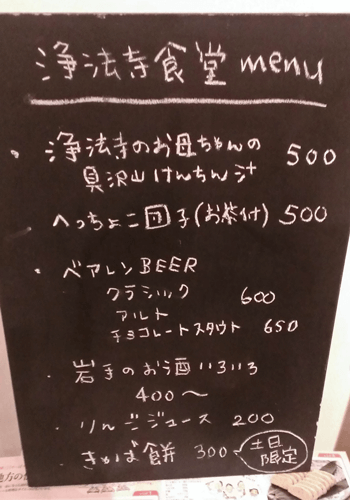 浄法寺食堂 menu
・浄法寺のお母ちゃんの 500
具沢山けんちん汁
へっちょこ団子(お茶付) 500
・ベアレンBEER
クラシック 600
アルト
チョコレートスタウト 650
・岩手のお酒いろいろ
400〜
・りんごジュース 200
・きゃば餅 300 土日
限定